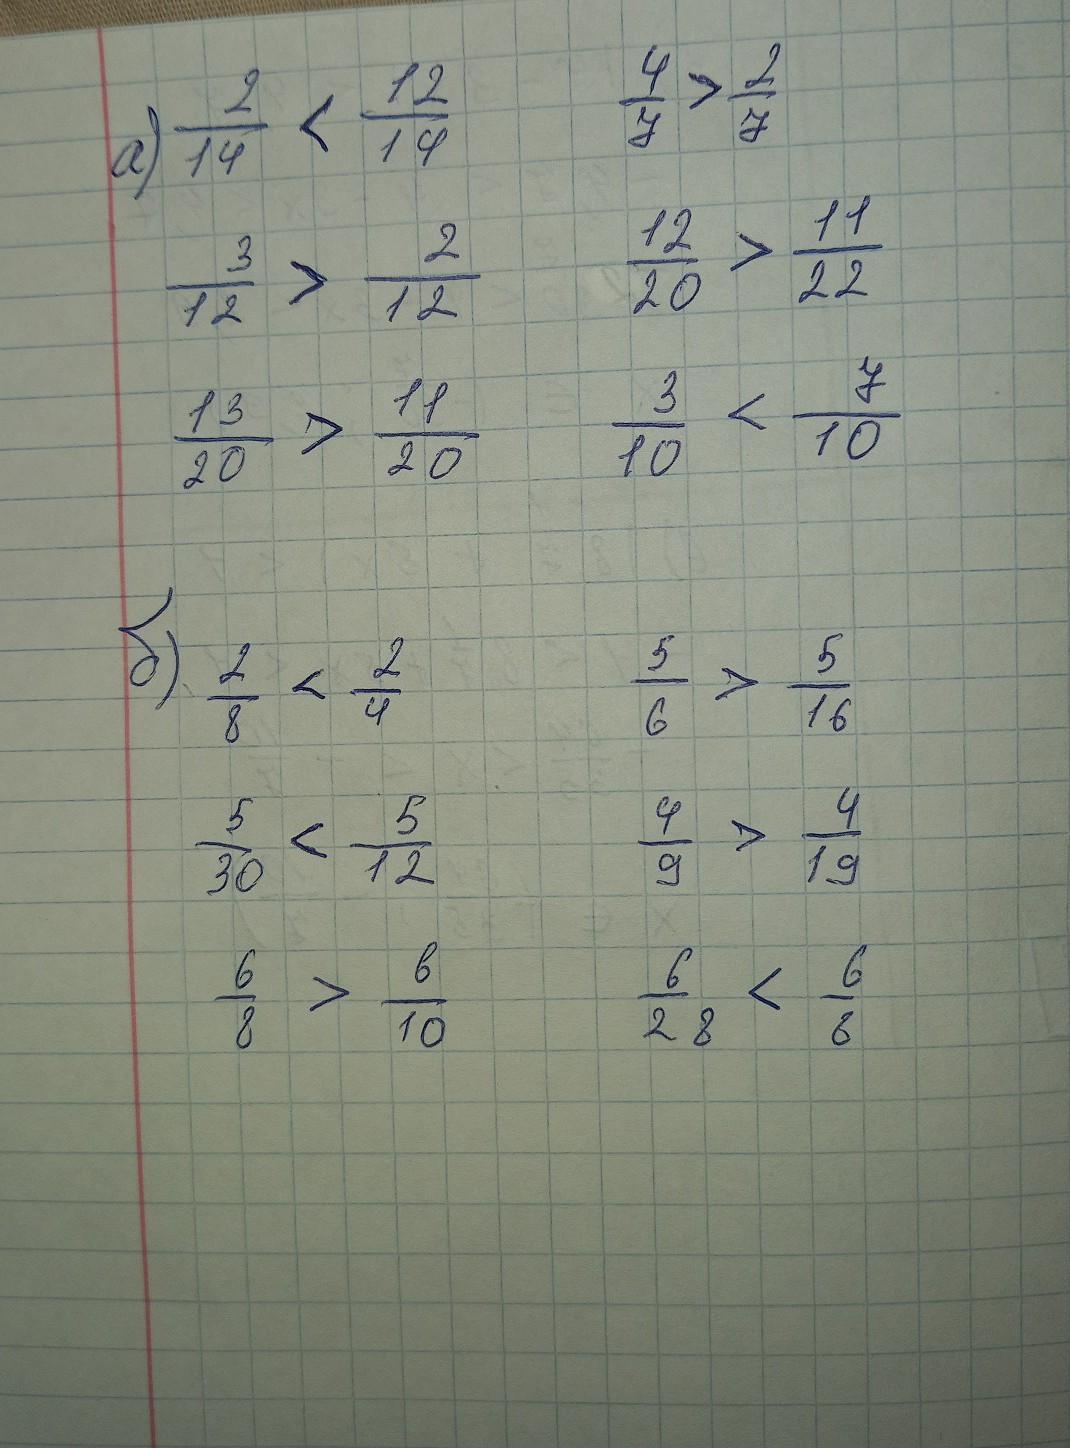 а) 2/14 < 12/14 4/7 > 2/7
3/12 > 2/12 12/20 > 11/22
13/20 > 11/20 3/10 < 7/10
б) 2/8 < 2/4 5/6 > 5/16
5/30 < 5/12 4/9 > 4/19
6/8 > 6/10 6/28 < 6/8